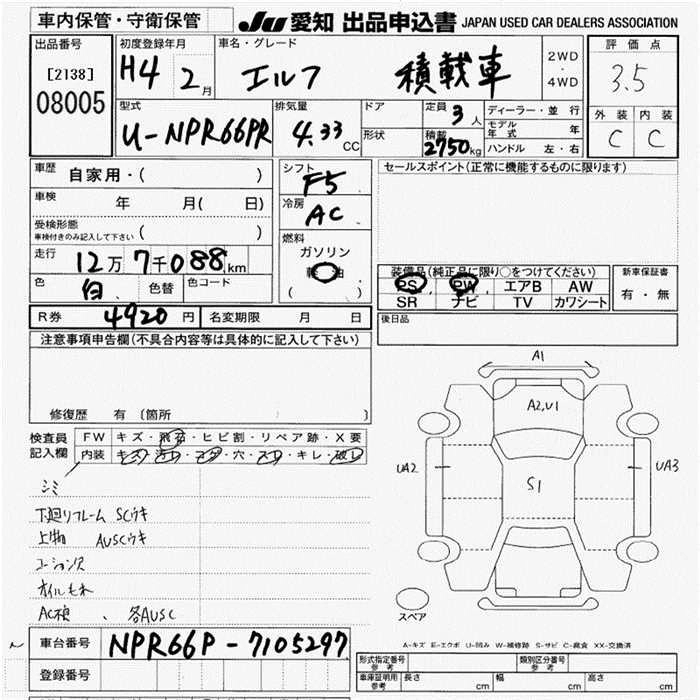 車内保管・守衛保管
JU 愛知 出品申込書 JAPAN USED CAR DEALERS ASSOCIATION
出品番号
[2138]
08005
初度登録年月
H4 2月
車名・グレード
エルフ 積載車
2WD
・
4WD
評価点
3.5
外装 内装
C C
型式
U-NPR66PR
排気量
4.33 CC
ドア
形状
定員
3人
積載
2750kg
ディーラー・並行
モデル
年式 年
ハンドル 左・右
車歴 自家用・( )
車検 年 月( 日)
受検形態
車検付きのみ記入して下さい ( )
走行 12万7千088km
色 白 色替 色コード
シフト
F5
冷房
AC
燃料
ガソリン
軽油
( )
セールスポイント(正常に機能するものに限ります)
装備品(純正品に限り○をつけてください)
PS PW エアB AW
SR ナビ TV カワシート
新車保証書
有・無
後日品
R券 4920円 名変期限 月 日
注意事項申告欄(不具合内容等は具体的に記入して下さい)
修復歴 有 〔箇所 〕
検査員
記入欄
FW キズ・飛石・ヒビ割・リペア跡・X要
内装 キズ・汚レ・コゲ・穴・スレ・キレ・破レ
シミ
下廻リフレーム SCウキ
上物 AUSCウキ
オイルモレ
各AUSC
A1
A2,U1
UA2
S1
UA3
スペア
A-キズ E-エクボ U-凹み W-補修跡 S-サビ C-腐食 XX-交換済
車台番号 NPR66P-7105297
登録番号
形式指定番号
参考
類別区分番号
参考
車庫証明用
参考
長さ cm 幅 cm 高さ cm